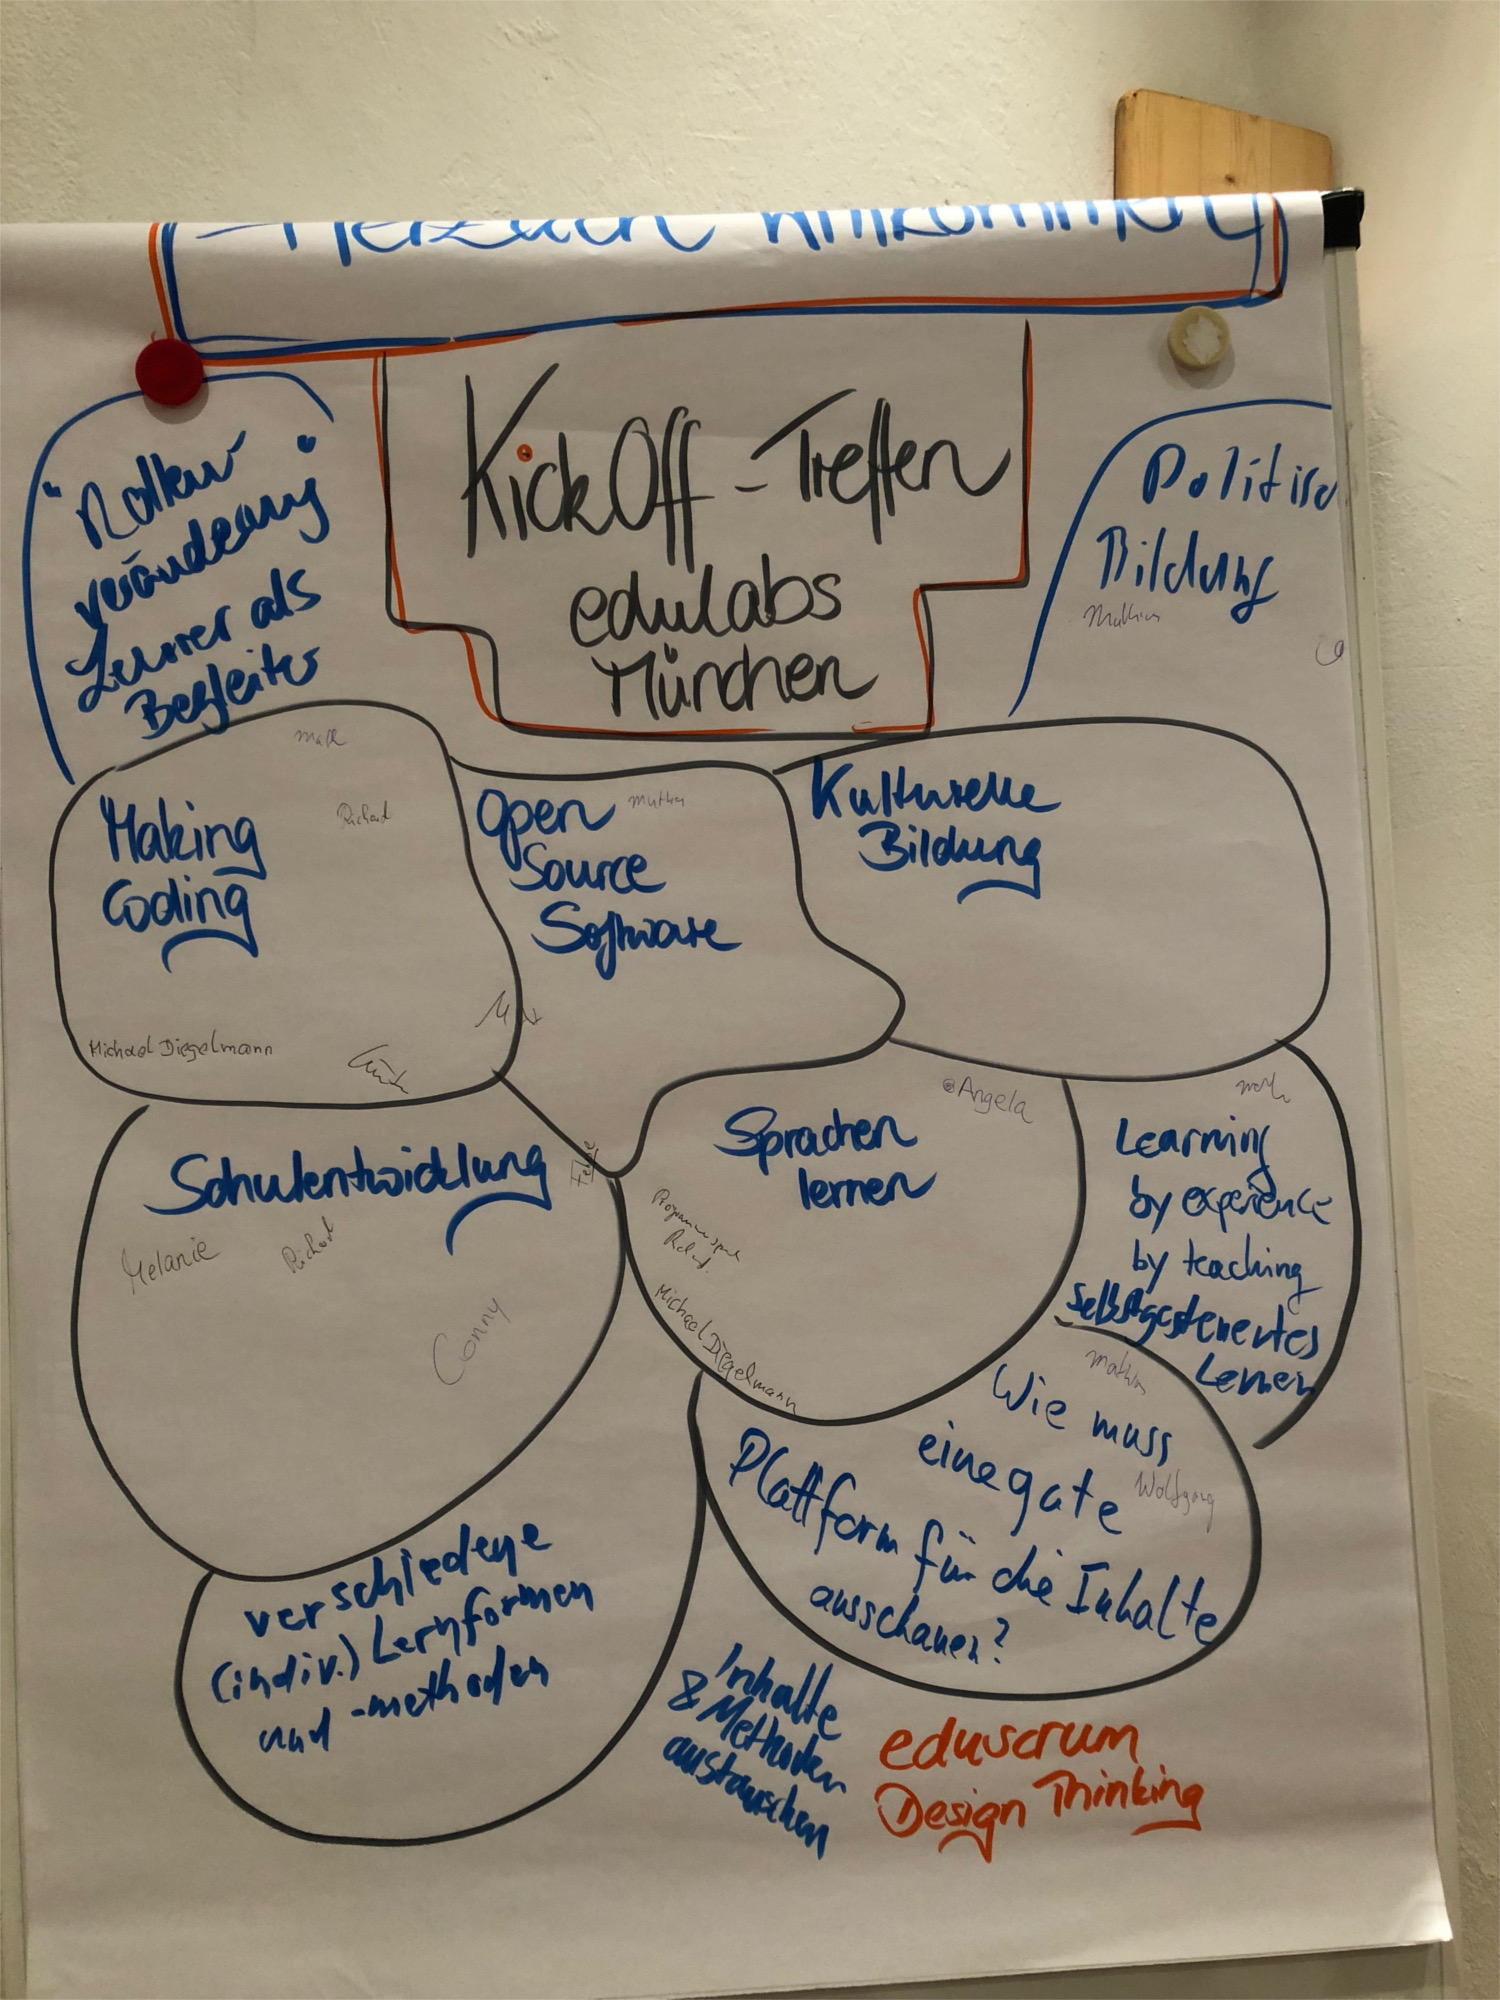 Herzlich Willkommen
KickOff-Treffen
edulabs
München
"Rollen
veränderung"
Lehrer als
Begleiter
Politisch
Bildung
Mathias
Making
Coding
Richard
Michael Diegelmann
Open
Source
Software
Kulturelle
Bildung
Schulentwicklung
Melanie
Richard
Conny
@Angela
Sprachen
lernen
Michael Diegelmann
Learning
by experience
by teaching
selbstgesteuertes
Lernen
Mathias
Wie muss
eine gute
Wolfgang
Plattform für die Inhalte
ausschauen?
verschiedene
(indiv.) Lernformen
und -methoden
Inhalte
& Methoden
austauschen
eduscrum
Design Thinking